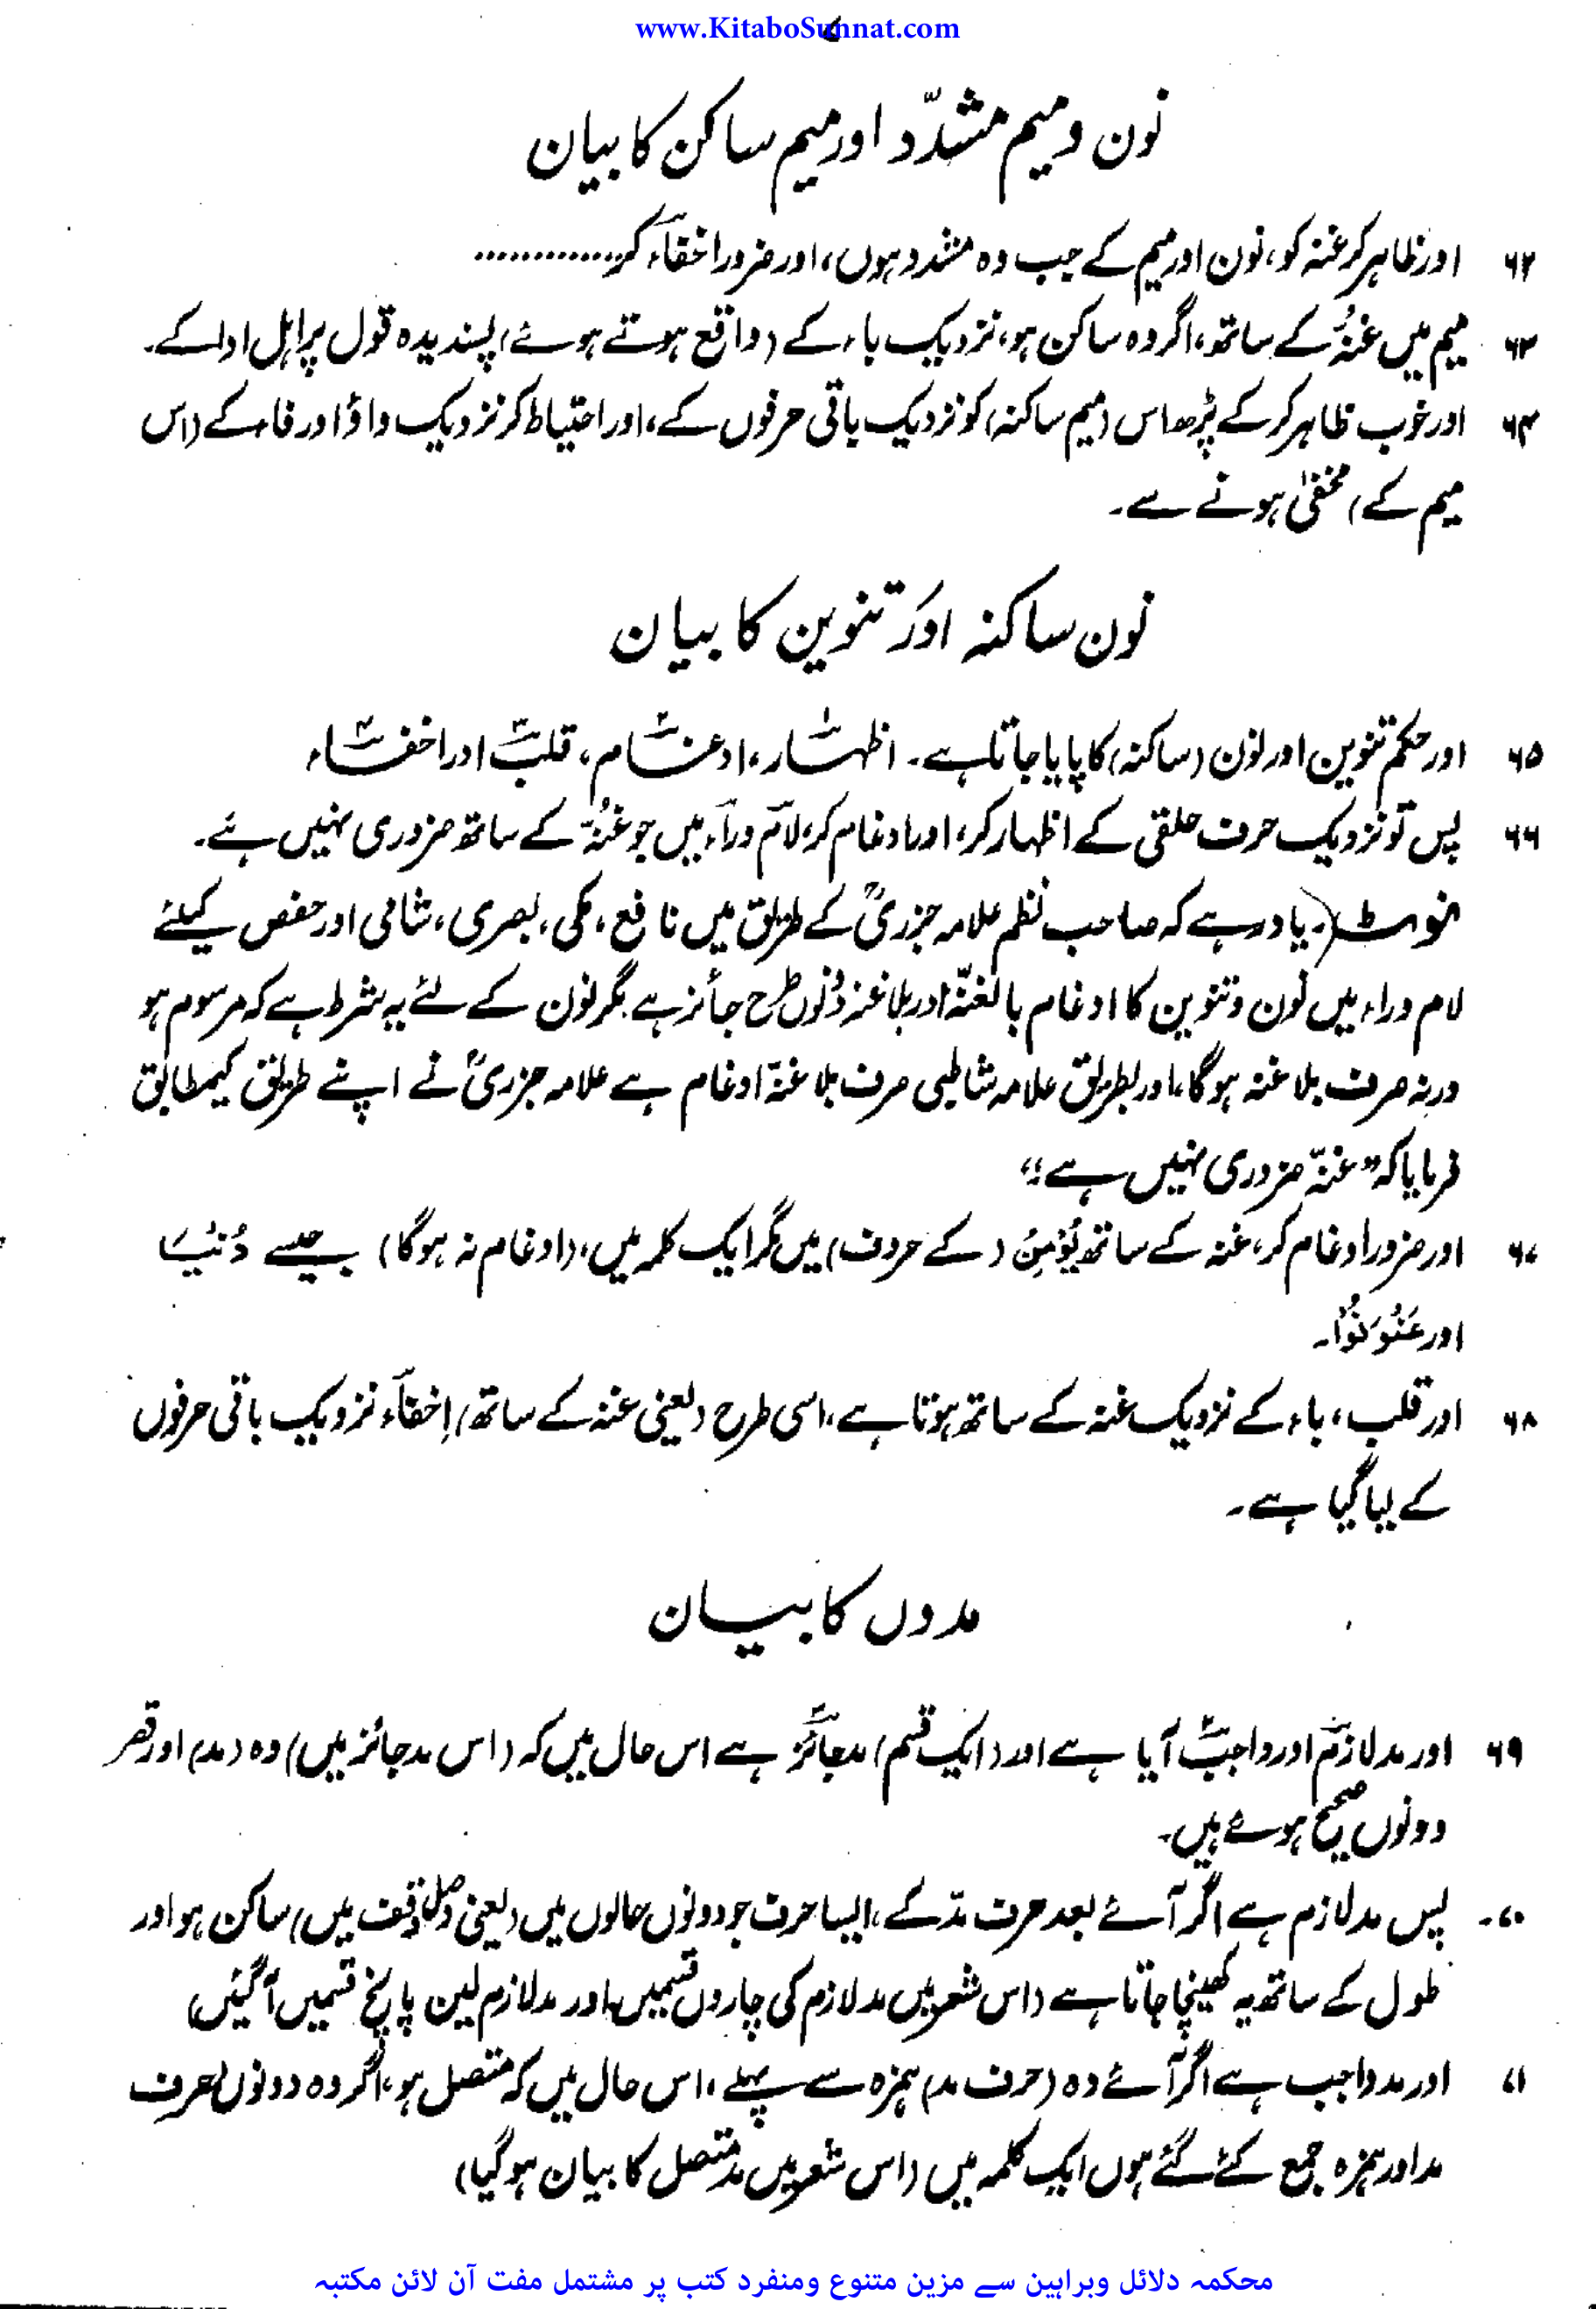 www.KitaboSunnat.com
نون و میم مشدّد اور میم ساکن کا بیان
۶۲ اور ظاہر کر غنہ کو، نون اور میم کے جب وہ مشدد ہوں، اور ضرور اخفاء کر.............
۶۳ میم میں غنہ کے ساتھ، اگر وہ ساکن ہو، نزدیک باء کے (واقع ہوتے ہوئے) پسندیدہ قول پر اہل ادا کے۔
۶۴ اور خوب ظاہر کر کے پڑھ اس (میم ساکنہ) کو نزدیک باقی حرفوں کے، اور احتیاط کر نزدیک واؤ اور فاء کے (اس
میم کے) مخفیٰ ہونے سے۔
نون ساکنہ اور تنوین کا بیان
۶۵ اور حکم تنوین اور نون (ساکنہ) کا پایا جاتا ہے۔ اظہار، ادغام، قلب اور اخفاء
۶۶ پس تو نزدیک حرف حلقی کے اظہار کر، اور ادغام کر، لام وراء میں جو غنہ کے ساتھ ضروری نہیں ہے۔
نوٹ (۔ یاد رہے کہ صاحب نظم علامہ جزریؒ کے طریق میں نافع، مکی، بصری، شامی اور حفص کیلئے
لام وراء میں نون وتنوین کا ادغام بالغنّہ اور بلا غنہ دونوں طرح جائز ہے مگر نون کے لئے یہ شرط ہے کہ مرسوم ہو
ورنہ صرف بلا غنہ ہوگا، اور بطریق علامہ شاطبی صرف بلا غنّہ ادغام ہے علامہ جزریؒ نے اپنے طریق کیمطابق
فرمایا کہ "غنّہ ضروری نہیں ہے"
۶۷ اور ضرور ادغام کر، غنہ کے ساتھ یُؤْمِنُ (کے حروف) میں مگر ایک کلمہ میں، (ادغام نہ ہوگا) جیسے دُنْیَا
اور عَنْوَنُوْا۔
۶۸ اور قلب، باء کے نزدیک غنہ کے ساتھ ہوتا ہے، اسی طرح (یعنی غنہ کے ساتھ) اِخفاء نزدیک باقی حرفوں
کے لیا گیا ہے۔
مدوں کا بیان
۶۹ اور مد لازم اور واجب آیا ہے اور (ایک قسم) مد جائز ہے اس حال میں کہ (اس مد جائز میں) وہ (مد) اور قصر
دونوں صحیح ہوئے ہیں۔
۷۰۔ پس مد لازم ہے اگر آئے بعد حرف مدّ کے، ایسا حرف جو دونوں حالوں میں (یعنی وصل وقف میں) ساکن ہو اور
طول کے ساتھ یہ کھینچا جاتا ہے (اس شعر میں مد لازم کی چاروں قسمیں اور مد لازم لین پانچ قسمیں آگئیں)
۷۱ اور مد واجب ہے اگر آئے وہ (حرف مد) ہمزہ سے پہلے، اس حال میں کہ متصل ہو، اگر وہ دونوں حرف
مد اور ہمزہ جمع کئے گئے ہوں ایک کلمہ میں (اس شعر میں مد متصل کا بیان ہوگیا)
محکمہ دلائل وبراہین سے مزین متنوع ومنفرد کتب پر مشتمل مفت آن لائن مکتبہ